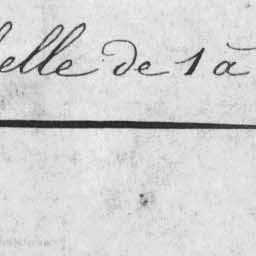 elle de 1 à